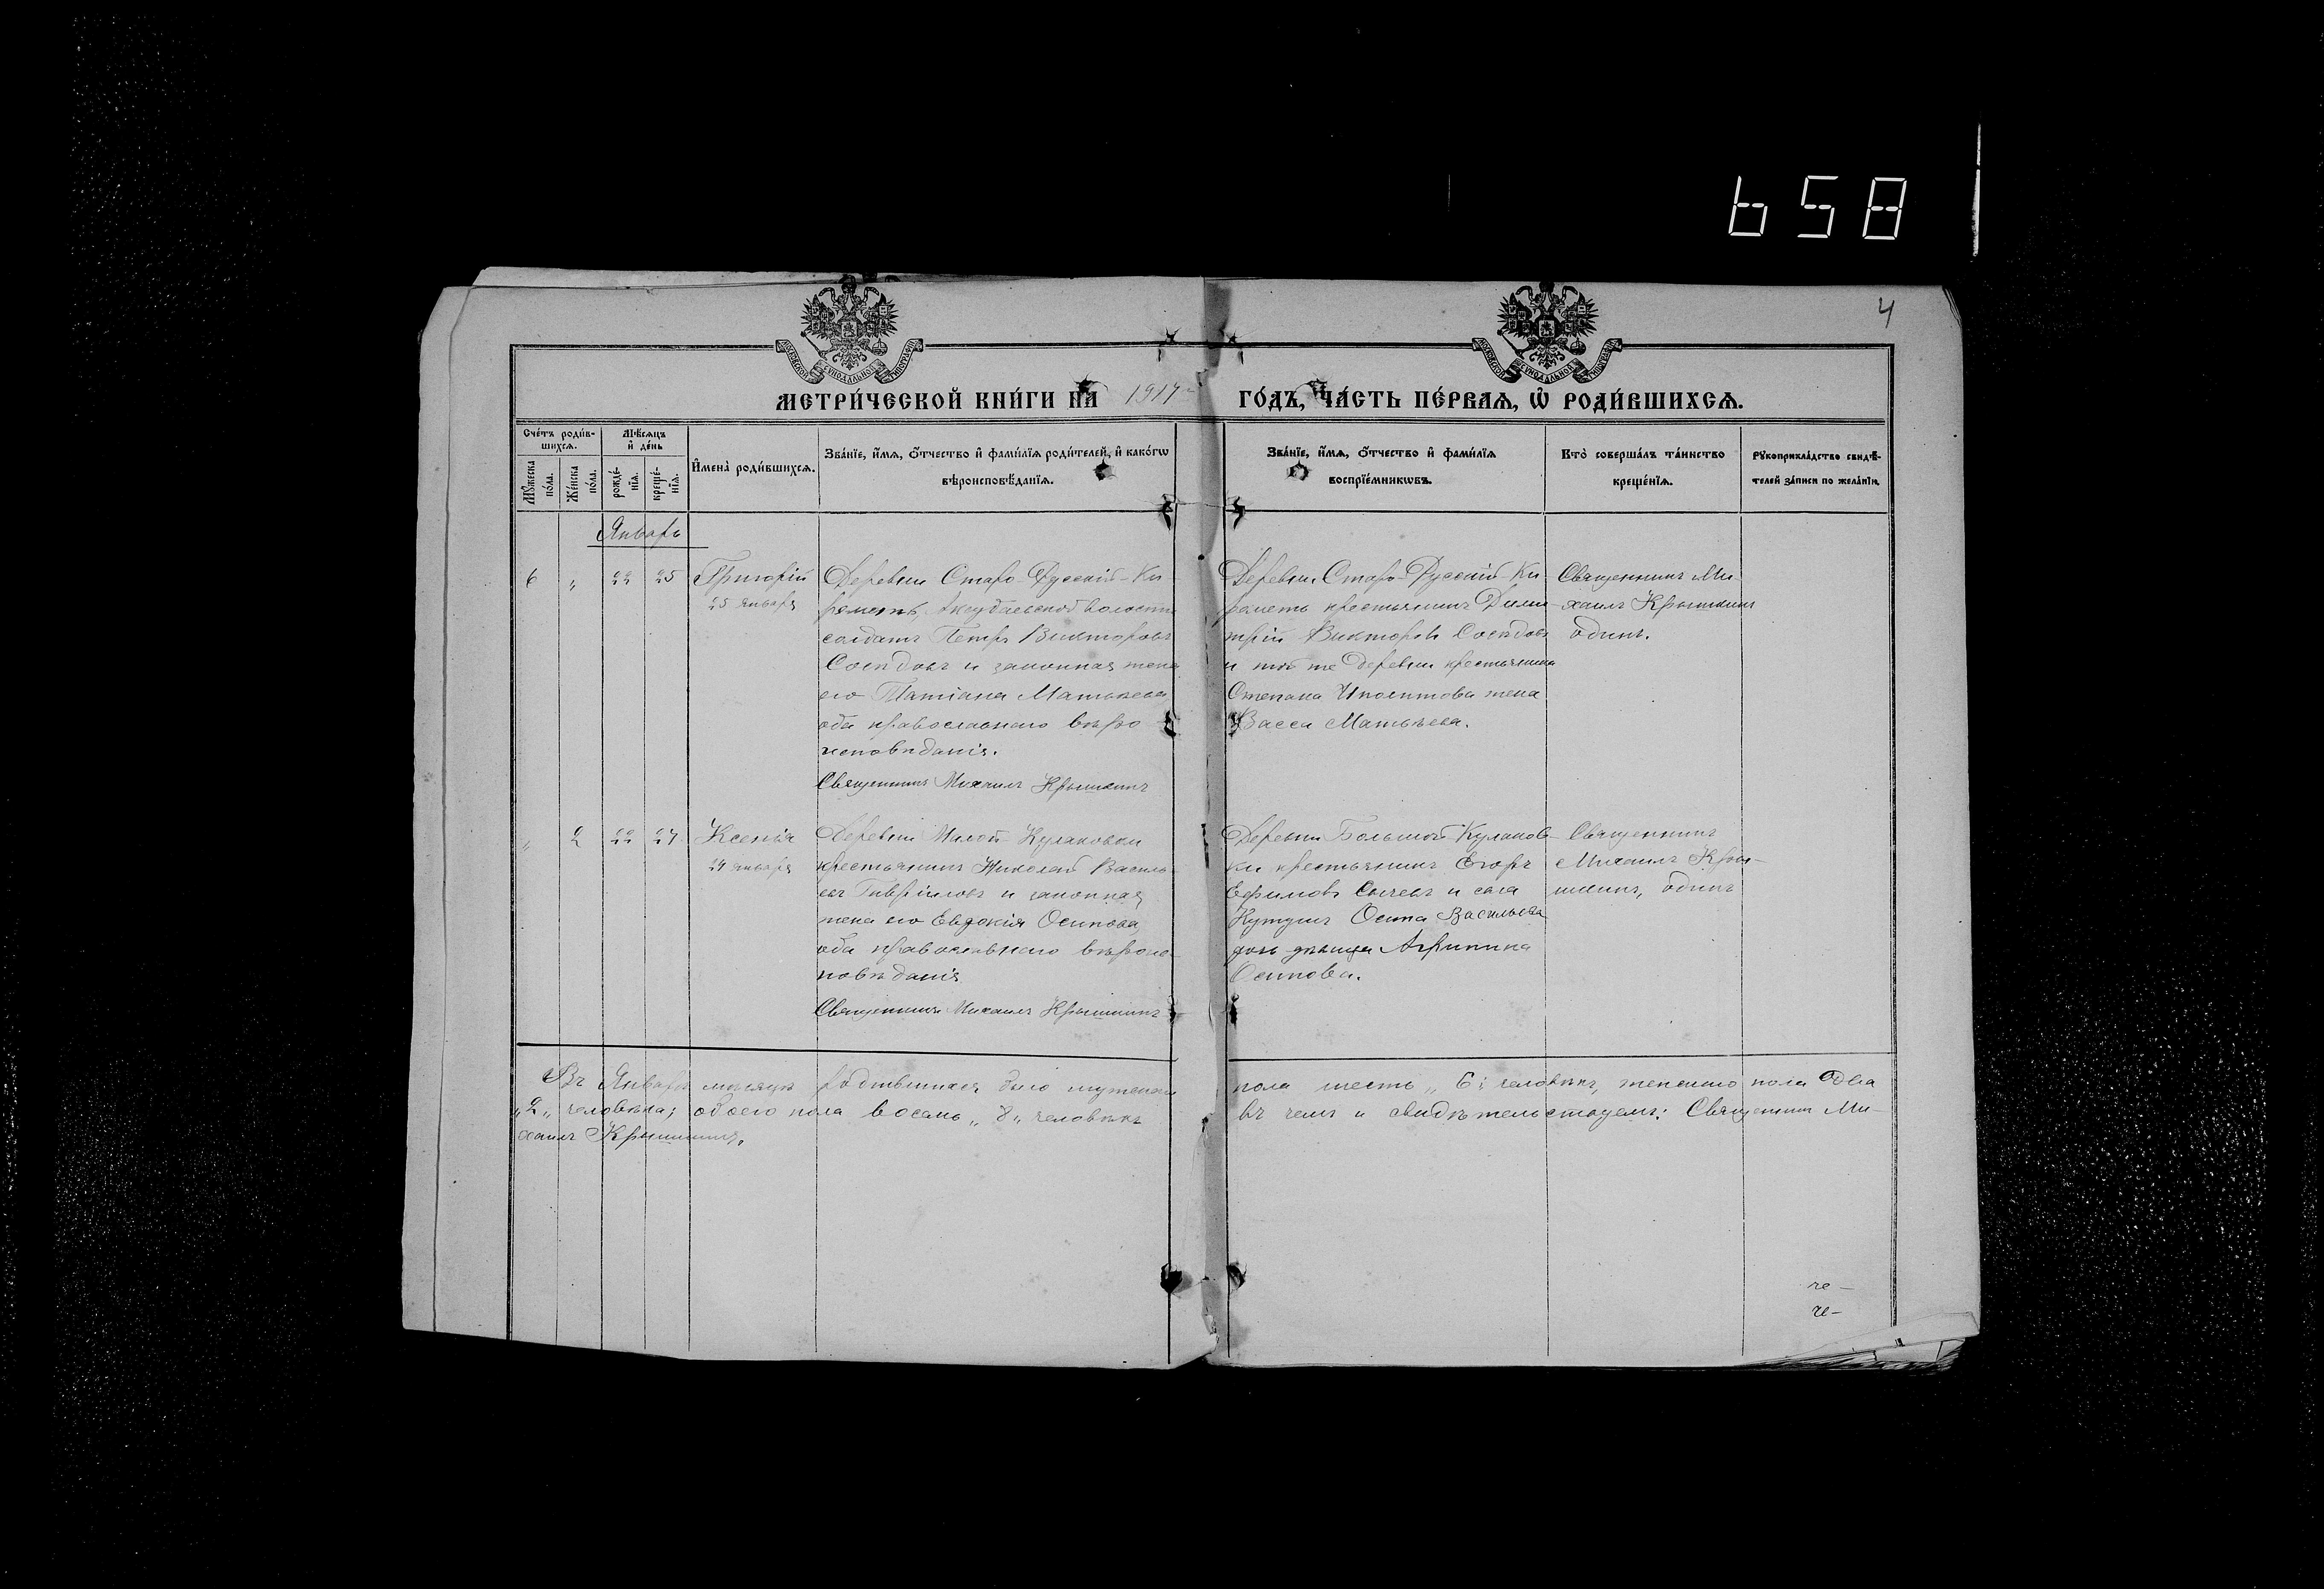 658
4
МОСКОВСКОЙ СѴНОДАЛЬНОЙ ТИПОГРАФІИ
МОСКОВСКОЙ СѴНОДАЛЬНОЙ ТИПОГРАФІИ
МЕТРИ́ЧЕСКОЙ КНИ́ГИ НА 1917 ГО́ДЪ, ЧА́СТЬ ПЕ́РВАѦ, Ѽ РОДИ́ВШИХСѦ.
Сче́тъ роди́в-
шихсѧ.
Мꙋ́жеска по́ла.
Же́нска по́ла.
Мѣ́сѧцъ
и҆ де́нь
рожде́-
нїѧ.
креще́-
нїѧ.
И҆мена̀ роди́вшихсѧ.
Зва́нїе, и҆́мѧ, ѻ҆́тчество и҆ фами́лїѧ роди́телей, и҆ како́гѡ
вѣроисповѣ́данїѧ.
Зва́нїе, и҆́мѧ, ѻ҆́тчество и҆ фами́лїѧ
воспрїе́мникѡвъ.
Кто̀ соверша́лъ та́инство
креще́нїѧ.
Рꙋкоприкла́дство свидѣ́-
телей за́писи по жела́нїю.
Январь
6 „ 22 25 Григорій
25 января
Деревни Старо-Русскій-Ки
реметь, Аксубаевской волости
солдатъ Петръ Викторовъ
Сосѣдовъ и законная жена
его Татіана Матвѣева
оба православнаго вѣро
исповѣданія.
Священникъ Михаилъ Крышкинъ
Деревни Старо-Русскій Ки
реметь крестьянинъ Дими
трій Викторовъ Сосѣдовъ
и той же деревни крестьянина
Степана Иполитова жена
Васса Матвѣева.
Священникъ Ми-
хаилъ Крышкинъ
одинъ.
„ 2 22 27 Ксенія
24 января
Деревни Малой Кулаковки
крестьянинъ Николай Василь
евъ Гавриловъ и законная
жена его Евдокія Осипова,
оба православнаго вѣроис-
повѣданія
Священникъ Михаилъ Крышкинъ
Деревни Большой Кулаков-
ки крестьянинъ Егоръ
Ефимовъ Сычевъ и села
Осипа Васильева
дочь дѣвица Агрипина
Осипова.
Священникъ
Михаилъ Кры-
шкинъ, одинъ
Въ Январѣ мѣсяцѣ родившихся было мужеска пола шесть „6„ человѣкъ, женскаго пола два
„2„ человѣка; обоего пола восемь „8„ человѣкъ въ чемъ и свидѣтельствуемъ: Священникъ Ми-
хаилъ Крышкинъ.
че-
че-